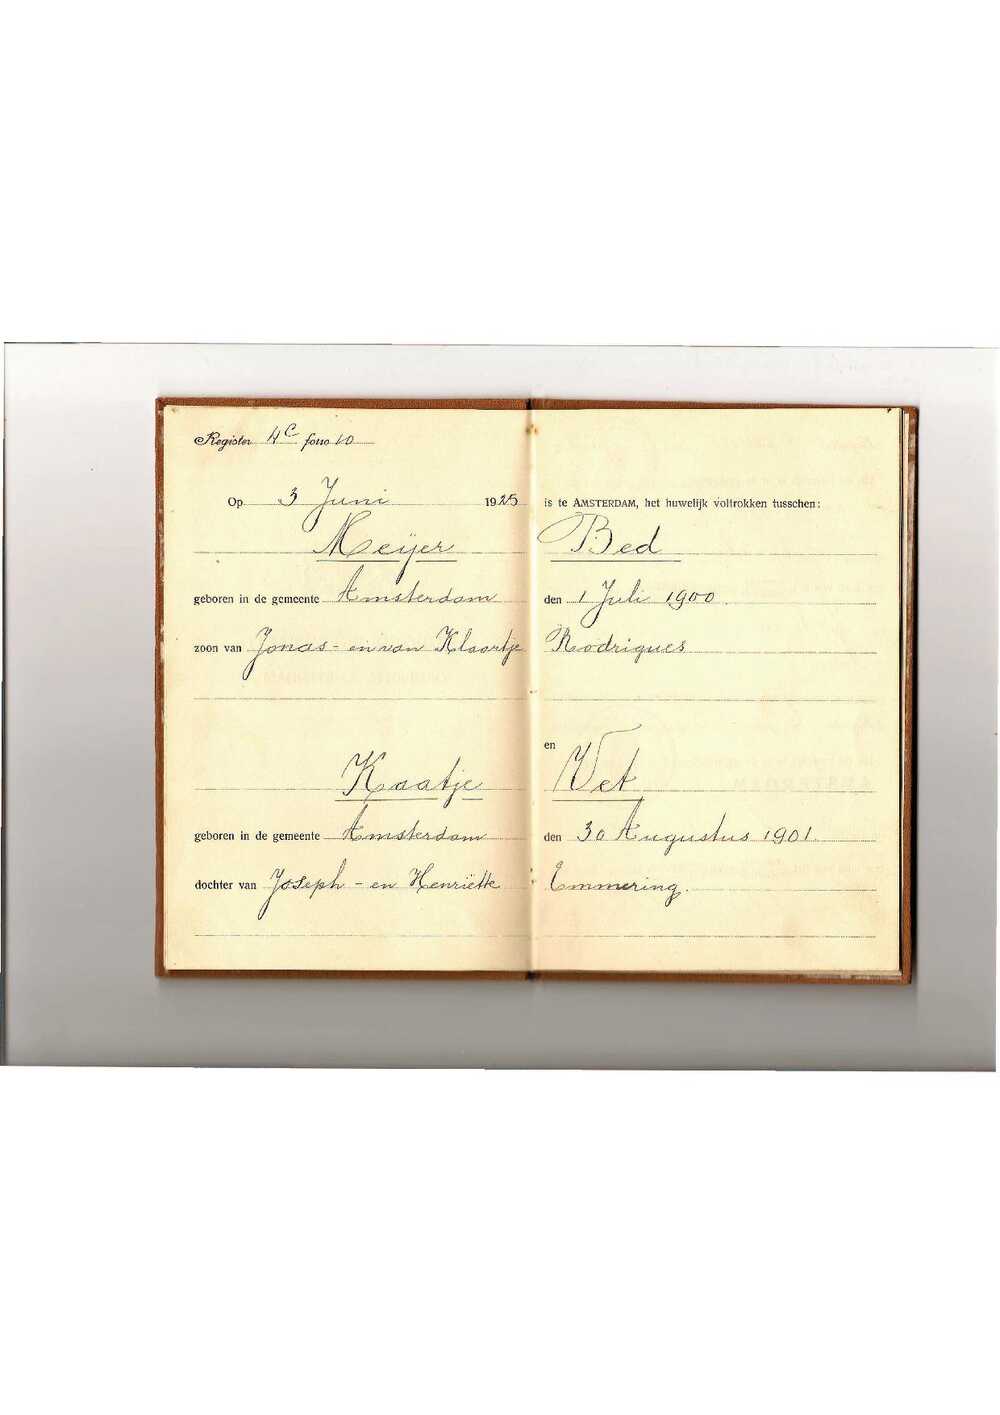 Register 4C folio 10
Op 3 Juni 1925 is te AMSTERDAM, het huwelijk voltrokken tusschen:
Meijer Bed
geboren in de gemeente Amsterdam den 1 Juli 1900
zoon van Jonas - en van Klaartje Rodrigues
en
Kaatje Vet
geboren in de gemeente Amsterdam den 30 Augustus 1901
dochter van Joseph - en Henriëtte Emmering.